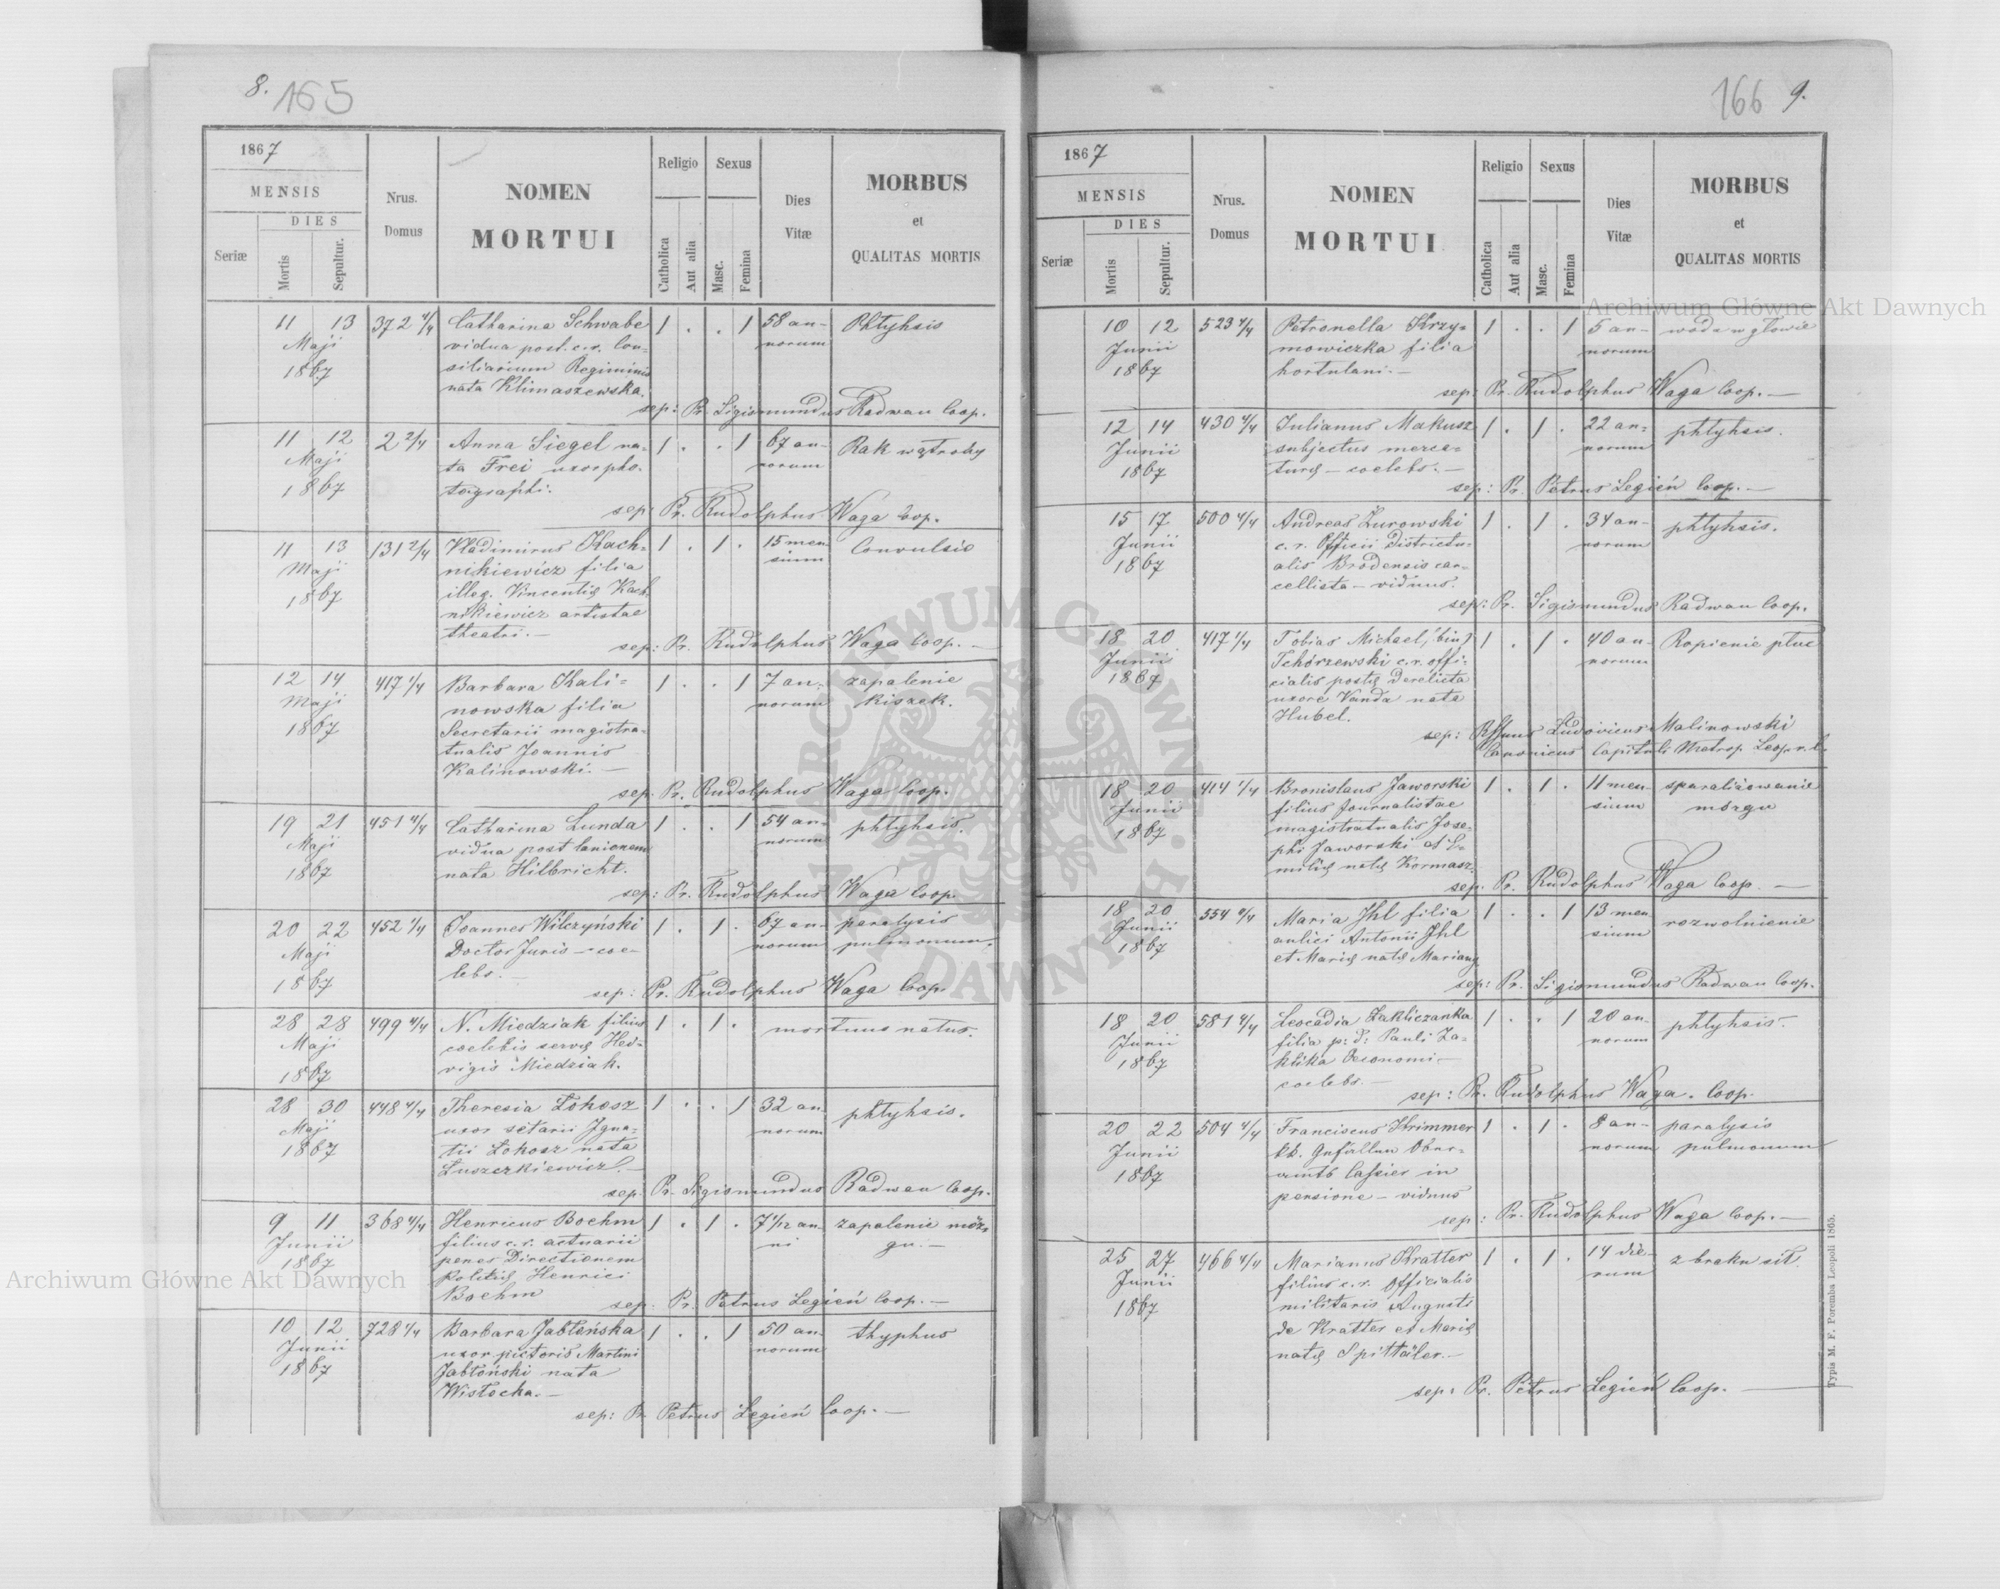 8. 165
1867
MENSIS
DIES
Seriæ
Mortis
Sepultur.
Nrus.
Domus
NOMEN
MORTUI
Religio
Catholica
Aut alia
Sexus
Masc.
Femina
Dies
Vitæ
MORBUS
et
QUALITAS MORTIS
11 13 372 4/4 Catharina Schwabe 1 . . 1 58 an- Phtyhsis
Maji vidua post. c. r. Con- norum
1867 siliarium Regiminis
nata Klimaszewska.
sep: Pr. Sigismundus Radwan Coop.
11 12 2 2/4 Anna Siegel na- 1 . . 1 67 an- Rak wątroby
Maji ta Frei uxor pho- norum
1867 tographi.
sep: Pr. Rudolphus Waga Coop.
11 13 131 2/4 Vladimirus Kach- 1 . 1 . 15 men Convulsio
Maji nikiewicz filia sium
1867 illeg. Vincentię Kach-
nikiewicz artistae
theatri. —
sep: Pr. Rudolphus Waga Coop. —
12 14 417 1/4 Barbara Kali- 1 . . 1 7 an- zapalenie
Maji nowska filia norum kiszek.
1867 Secretarii magistra-
tualis Joannis
Kalinowski. —
sep: Pr. Rudolphus Waga Coop.
19 21 451 4/4 Catharina Lunda 1 . . 1 54 an- phtyhsis.
Maji vidua post lanionem norum
1867 nata Hilbricht.
sep: Pr. Rudolphus Waga Coop.
20 22 452 1/4 Joannes Wilczyński 1 . 1 . 67 an- paralysis
Maji Doctor Juris — coe- norum pulmonum.
1867 lebs. —
sep: Pr. Rudolphus Waga Coop.
28 28 499 4/4 N. Miedziak filius 1 . 1 . mortuus natus.
Maji coelebis servę Hed-
1867 vigis Miedziak.
28 30 448 4/4 Theresia Łokosz 1 . . 1 32 an- phtyhsis.
Maji uxor setarii Igna- norum
1867 tii Łokosz nata
Łuszczkiewicz. —
sep. Pr. Sigismundus Radwan Coop.
9 11 368 4/4 Henricus Boehm 1 . 1 . 7 1/12 an- zapalenie móz-
Junii filius c. r. actuarii ni gu. —
1867 penes Directionem
Politię Henrici
Boehm
sep. Pr. Petrus Legień Coop. —
10 12 728 4/4 Barbara Jabłońska 1 . . 1 50 an- thyphus
Junii uxor pictoris Martini norum
1867 Jabłoński nata
Wisłocka. —
sep: Pr. Petrus Legień Coop. —
166 9.
1867
MENSIS
DIES
Seriæ
Mortis
Sepultur.
Nrus.
Domus
NOMEN
MORTUI
Religio
Catholica
Aut alia
Sexus
Masc.
Femina
Dies
Vitæ
MORBUS
et
QUALITAS MORTIS
10 12 523 4/4 Petronella Krzy- 1 . . 1 5 an- woda w głowie
Junii mowiczka filia norum
1867 hortulani. —
sep: Pr. Rudolphus Waga Coop. —
12 14 430 4/4 Julianus Makusz 1 . 1 . 22 an- phtyhsis.
Junii subjectus merca- norum
1867 turę — coelebs. —
sep: Pr. Petrus Legień Coop. —
15 17 500 4/4 Andreas Żurowski 1 . 1 . 34 an- phtyhsis.
Junii c. r. Officii Districtu- norum
1867 alis Brodensis can-
cellista — viduus.
sep: Pr. Sigismundus Radwan Coop.
18 20 417 1/4 Tobias Michael (bin) 1 . 1 . 40 an- Ropienie płuc
Junii Tchórzewski c. r. offi- norum
1867 cialis postę derelicta
uxore Vanda nata
Hubel.
sep: Rssmus Ludovicus Malinowski
Canonicus Capituli Metrop. Leop. r. l.
18 20 414 1/4 Bronislaus Jaworski 1 . 1 . 11 men- sparaliżowanie
Junii filius Journalistae sium mózgu
1867 magistratualis Jose-
phi Jaworski et E-
milię natę Kormasz.
sep: Pr. Rudolphus Waga Coop. —
18 20 554 4/4 Maria Ihl filia 1 . . 1 13 men- rozwolnienie
Junii aulici Antonii Ihl sium
1867 et Marię natę
sep: Pr. Sigismundus Radwan Coop.
18 20 581 4/4 Leocadia Zakliczanka 1 . . 1 20 an- phtyhsis.
Junii filia p: d: Pauli Za- norum
1867 klika Oeconomi —
coelebs. —
sep: Pr. Rudolphus Waga. Coop.
20 22 504 4/4 Franciscus Krimmer 1 . 1 . 8 an- paralysis
Junii kk. Gefällen Ober- norum pulmonum
1867 amts Cassier in
pensione — viduus
sep: Pr. Rudolphus Waga Coop. —
25 27 466 4/4 Marianus Kratter 1 . 1 . 14 die- z braku sił.
Junii filius c. r. Officialis rum
1867 militaris Augusti
de Kratter et Marię
natę Spittäler. —
sep: Pr. Petrus Legień Coop. —
Typis M. F. Poremba Leopoli 1865.
Archiwum Główne Akt Dawnych
Archiwum Główne Akt Dawnych
ARCHIWUM GŁÓWNE AKT DAWNYCH